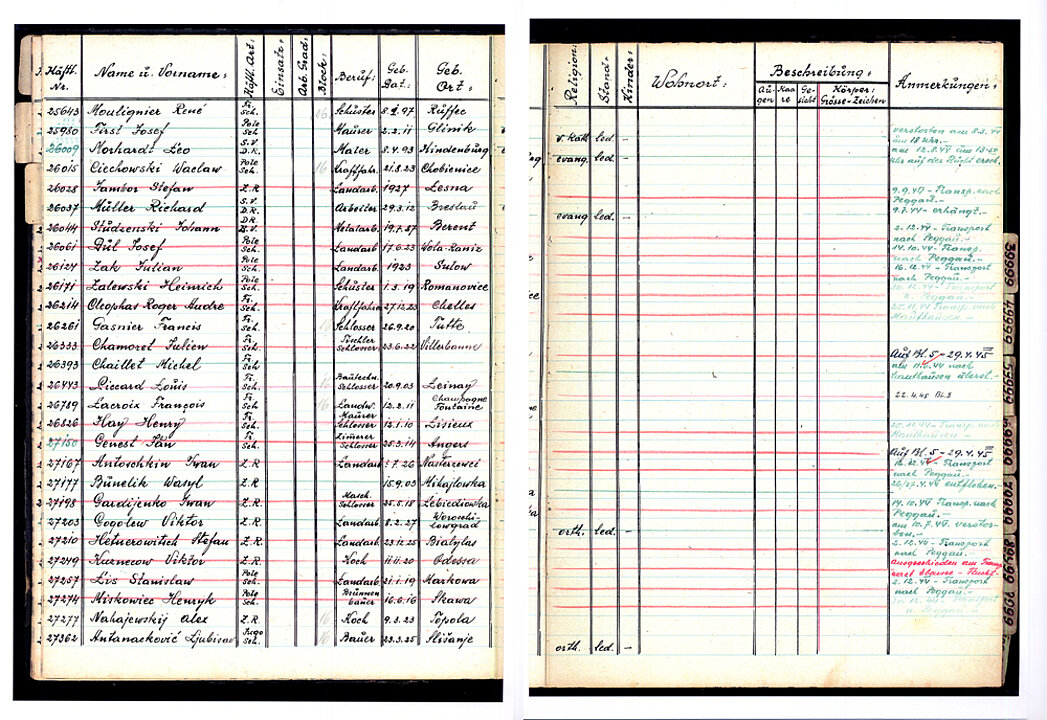 Häftl. Nr. Name u. Vorname: Häftl. Art: Einsatz: Arb. Grad: Block: Beruf: Geb. Dat.: Geb. Ort:
25643 Moulignier René Fr. Sch. 16 Schuster 8.2.97 Ruffec
25980 Tirst Josef Pole Sch. Maurer 2.2.11 Glinik
26009 Morhardt Leo S.V. D.R. Maler 8.4.93 Hindenburg
26015 Ciechowski Wacław Pole Sch. 16 Kraftfahr. 21.8.23 Chobienice
26028 Tambor Stefan Z.R. Landarb. 1927 Lesna
26037 Müller Richard S.V. D.R. Arbeiter 29.3.12 Breslau
26044 Studzenski Johann D.R. Metalarb. 19.7.27 Berent
26061 Dul Josef Pole Sch. Landarb. 17.6.23
26124 Zak Julian Pole Sch. Landarb. 1923 Sulow
26171 Zalewski Heinrich Pole Sch. Schuster 1.3.19 Romanovice
26214 Oleophas Roger Andre Fr. Sch. Kraftfahr 27.12.23 Chelles
26261 Gasnier Francis Fr. Sch. Schlosser 26.9.20 Tutte
26333 Chamoret Julien Fr. Sch. Tischler Schlosser 23.6.22 Villerbanne
26393 Chaillet Michel Fr. Sch.
26443 Liccard Louis Fr. Sch. 16 Bautechn. Schlosser 20.9.03 Leinay
26789 Lacroix François Fr. Sch. 16 Landw. 12.2.11 Champagne Fontaine
26826 Hay Henry Fr. Sch. Maurer Schlosser 12.1.10 Lisieux
27150 Genest Jan Fr. Sch. Zimerer Schlosser 25.3.14 Angers
27167 Antoschkin Iwan Z.R. Landarb. 7.26
27177 Bunelik Wasyl 15.9.03 Mihajlowka
27198 Gardijenko Iwan Z.R. Masch. Schlosser 25.5.18 Lebiediowka
27203 Gogolew Viktor Z.R. Landarb. 8.2.27 Woroschilowgrad
27210 Hetnerowitsch Stefan Z.R. Landarb. 23.12.25 Bialylas
27249 Kurnecow Viktor Z.R. Koch 11.11.20 Odessa
27257 Lis Stanislaw Pole Sch. Landarb. 21.1.19 Markowa
27274 Miskowiec Henryk Pole Sch. Brunnen bauer 16.6.16 Skawa
27277 Nahajewskij Alex Z.R. 16 Koch 9.3.23 Topola
27362 Antanacković Ljubisav Sch. 16 Bauer 23.3.25 Slišanje
Religion: Stand: Kinder: Wohnort: Beschreibung: Augen Haare Gesicht Körper: Grösse-Zeichen Anmerkungen:
r. kath. led. - verstorben am 8.3.44 um 18 Uhr.-
evang. led. - am 12.8.44 um 13:40 Uhr auf der Flucht ersch.
9.9.44 - Transp. nach Peggau.-
evang led. - 9.7.44 - erhängt.-
2.12.44 - Transport nach Peggau.-
14.10.44 - Transp. nach Peggau.-
16.12.44 - Transport nach Peggau.-
10.12.44 - Transport n. Peggau.-
25.11.44 Transp. nach Mauthausen -
Auf Bl. 5 - 29.4.45
am nach Mauthausen überst.-
22.4.45 Bl.3
20.11.44 - Transp. nach Mauthausen -
Auf Bl. 5 - 29.4.45
16.12.44 - Transport nach Peggau.-
26/27.4.44 entflohen.-
14.10.44 - Transp. nach Peggau.-
orth. led. - am 10.7.44 verstorben.-
2.12.44 - Transport nach Peggau.-
ausgeschieden am Transp. nach - Flucht.
2.12.44 - Transport nach Peggau.-
10.12.44 - Transport n. Peggau.-
orth. led. -
39999
49999
59999
69999
79999
99999